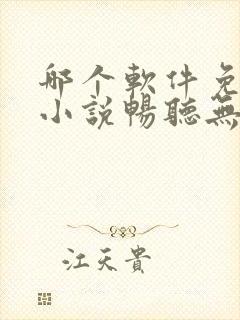 哪个軟件免
小説暢聽無
江天貴